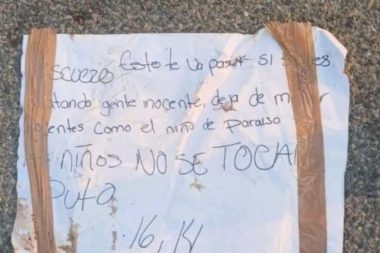 scuezo Esto te va pasar si s es
atando gente inocente, deja de m r
centes como el niño de Paraiso
niños NO SE TOCAN
Puta
. 16, 14